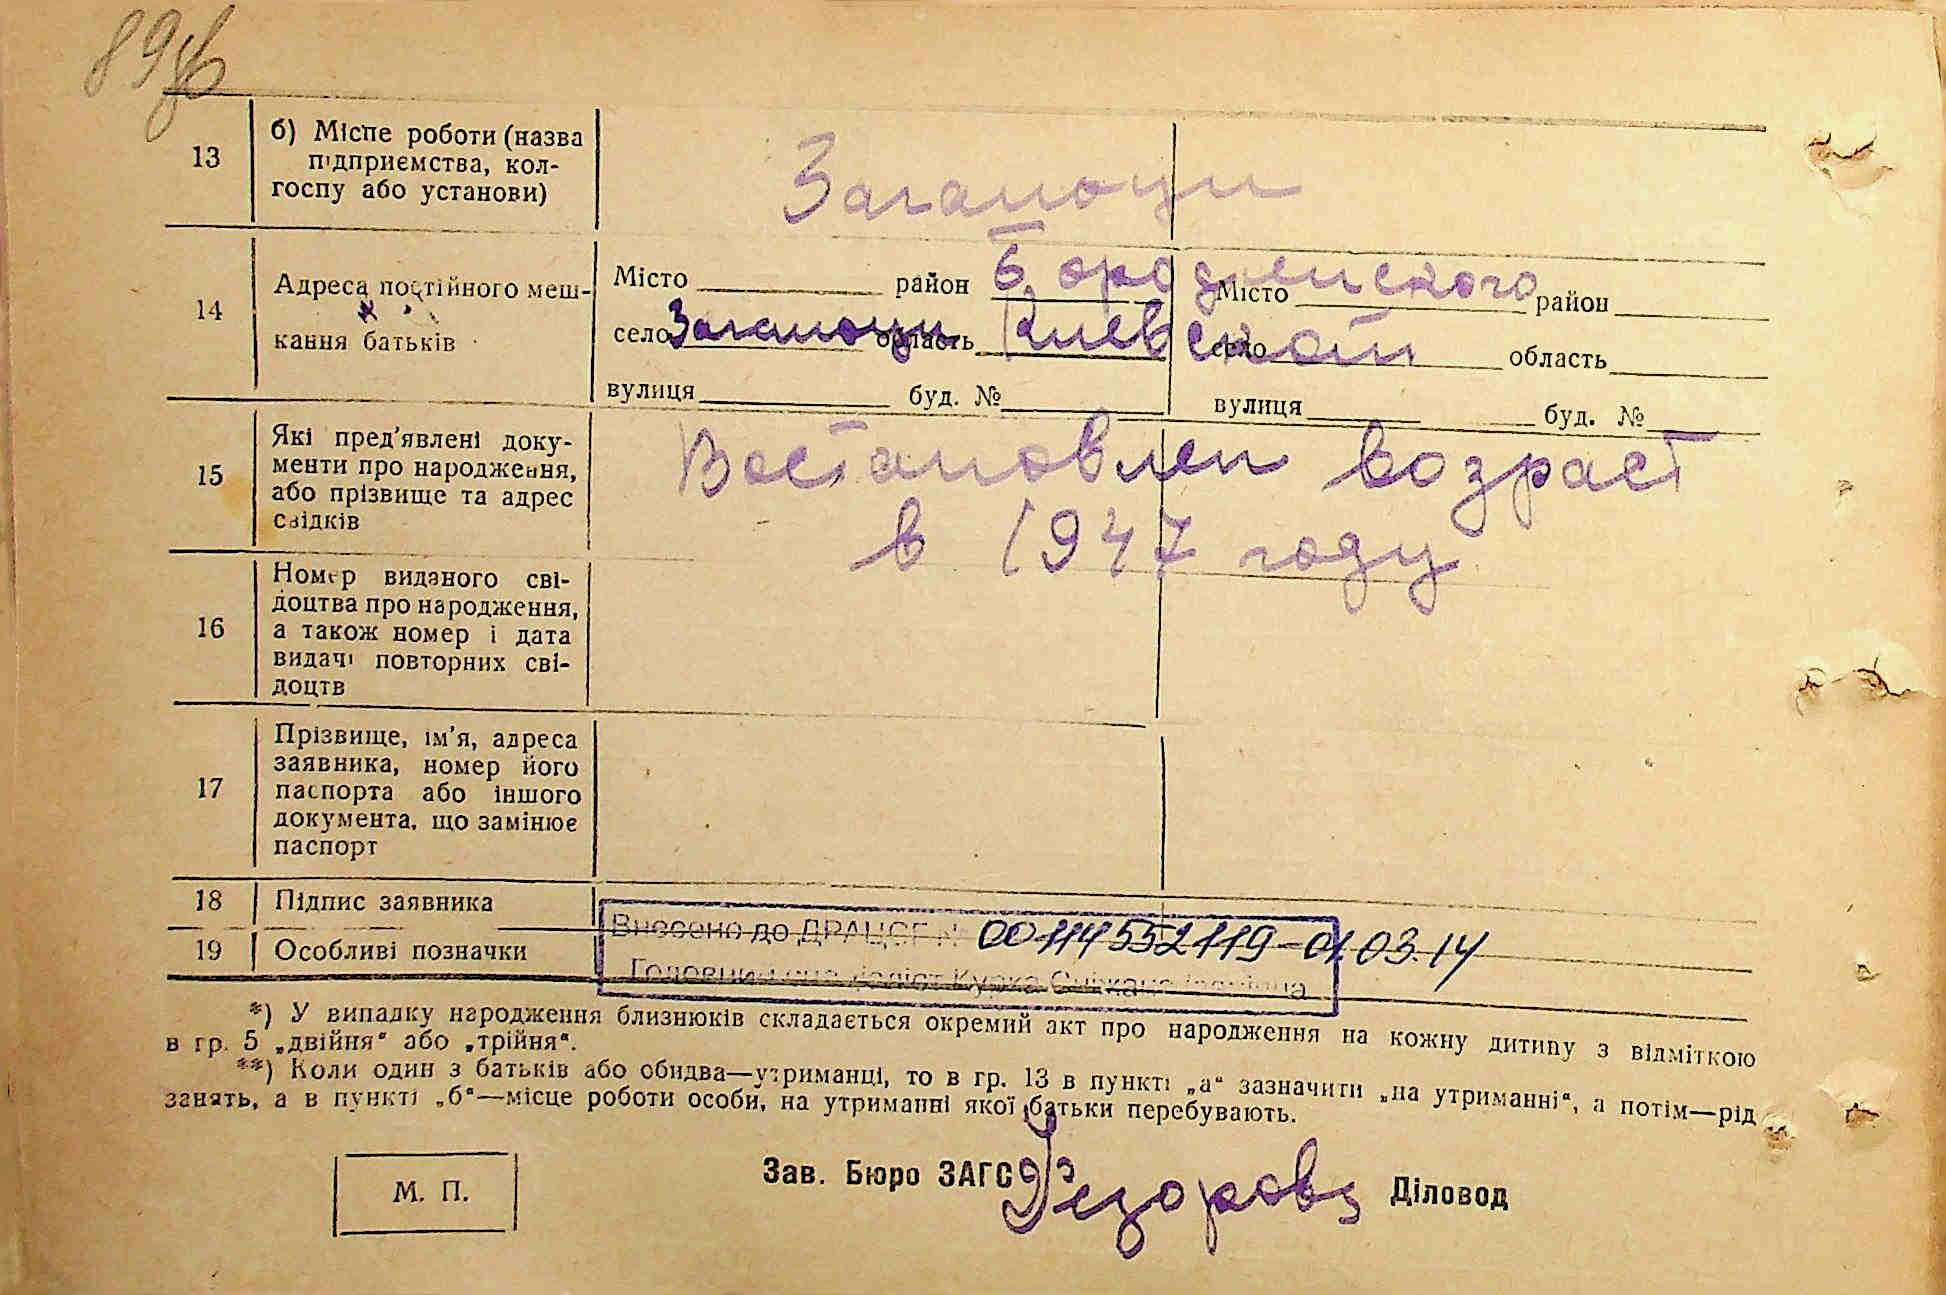 89зв
13
б) Місце роботи (назва
підприємства, кол-
госпу або установи)
Загальцы
14
Адреса постійного меш-
кання батьків
Місто район Бородянского Місто район
село Загальцы область Киевской село область
вулиця буд. № вулиця буд. №
15
Які пред'явлені доку-
менти про народження,
або прізвище та адрес
свідків
Востановлен возраст
в 1947 году
16
Номер виданого сві-
доцтва про народження,
а також номер і дата
видачі повторних сві-
доцтв
17
Прізвище, ім'я, адреса
заявника, номер його
паспорта або іншого
документа, що замінює
паспорт
18 Підпис заявника
19 Особливі позначки
Внесено до ДРАЦСГ № 00114552119-01.03.14
Головний спеціаліст Курка Сніжана
*) У випадку народження близнюків складається окремий акт про народження на кожну дитину з відміткою
в гр. 5 „двійня“ або „трійня“.
**) Коли один з батьків або обидва—утриманці, то в гр. 13 в пункті „а“ зазначити „на утриманні“, а потім—рід
занять, а в пункті „б“—місце роботи особи, на утриманні якої батьки перебувають.
М. П.
Зав. Бюро ЗАГС Федорова Діловод